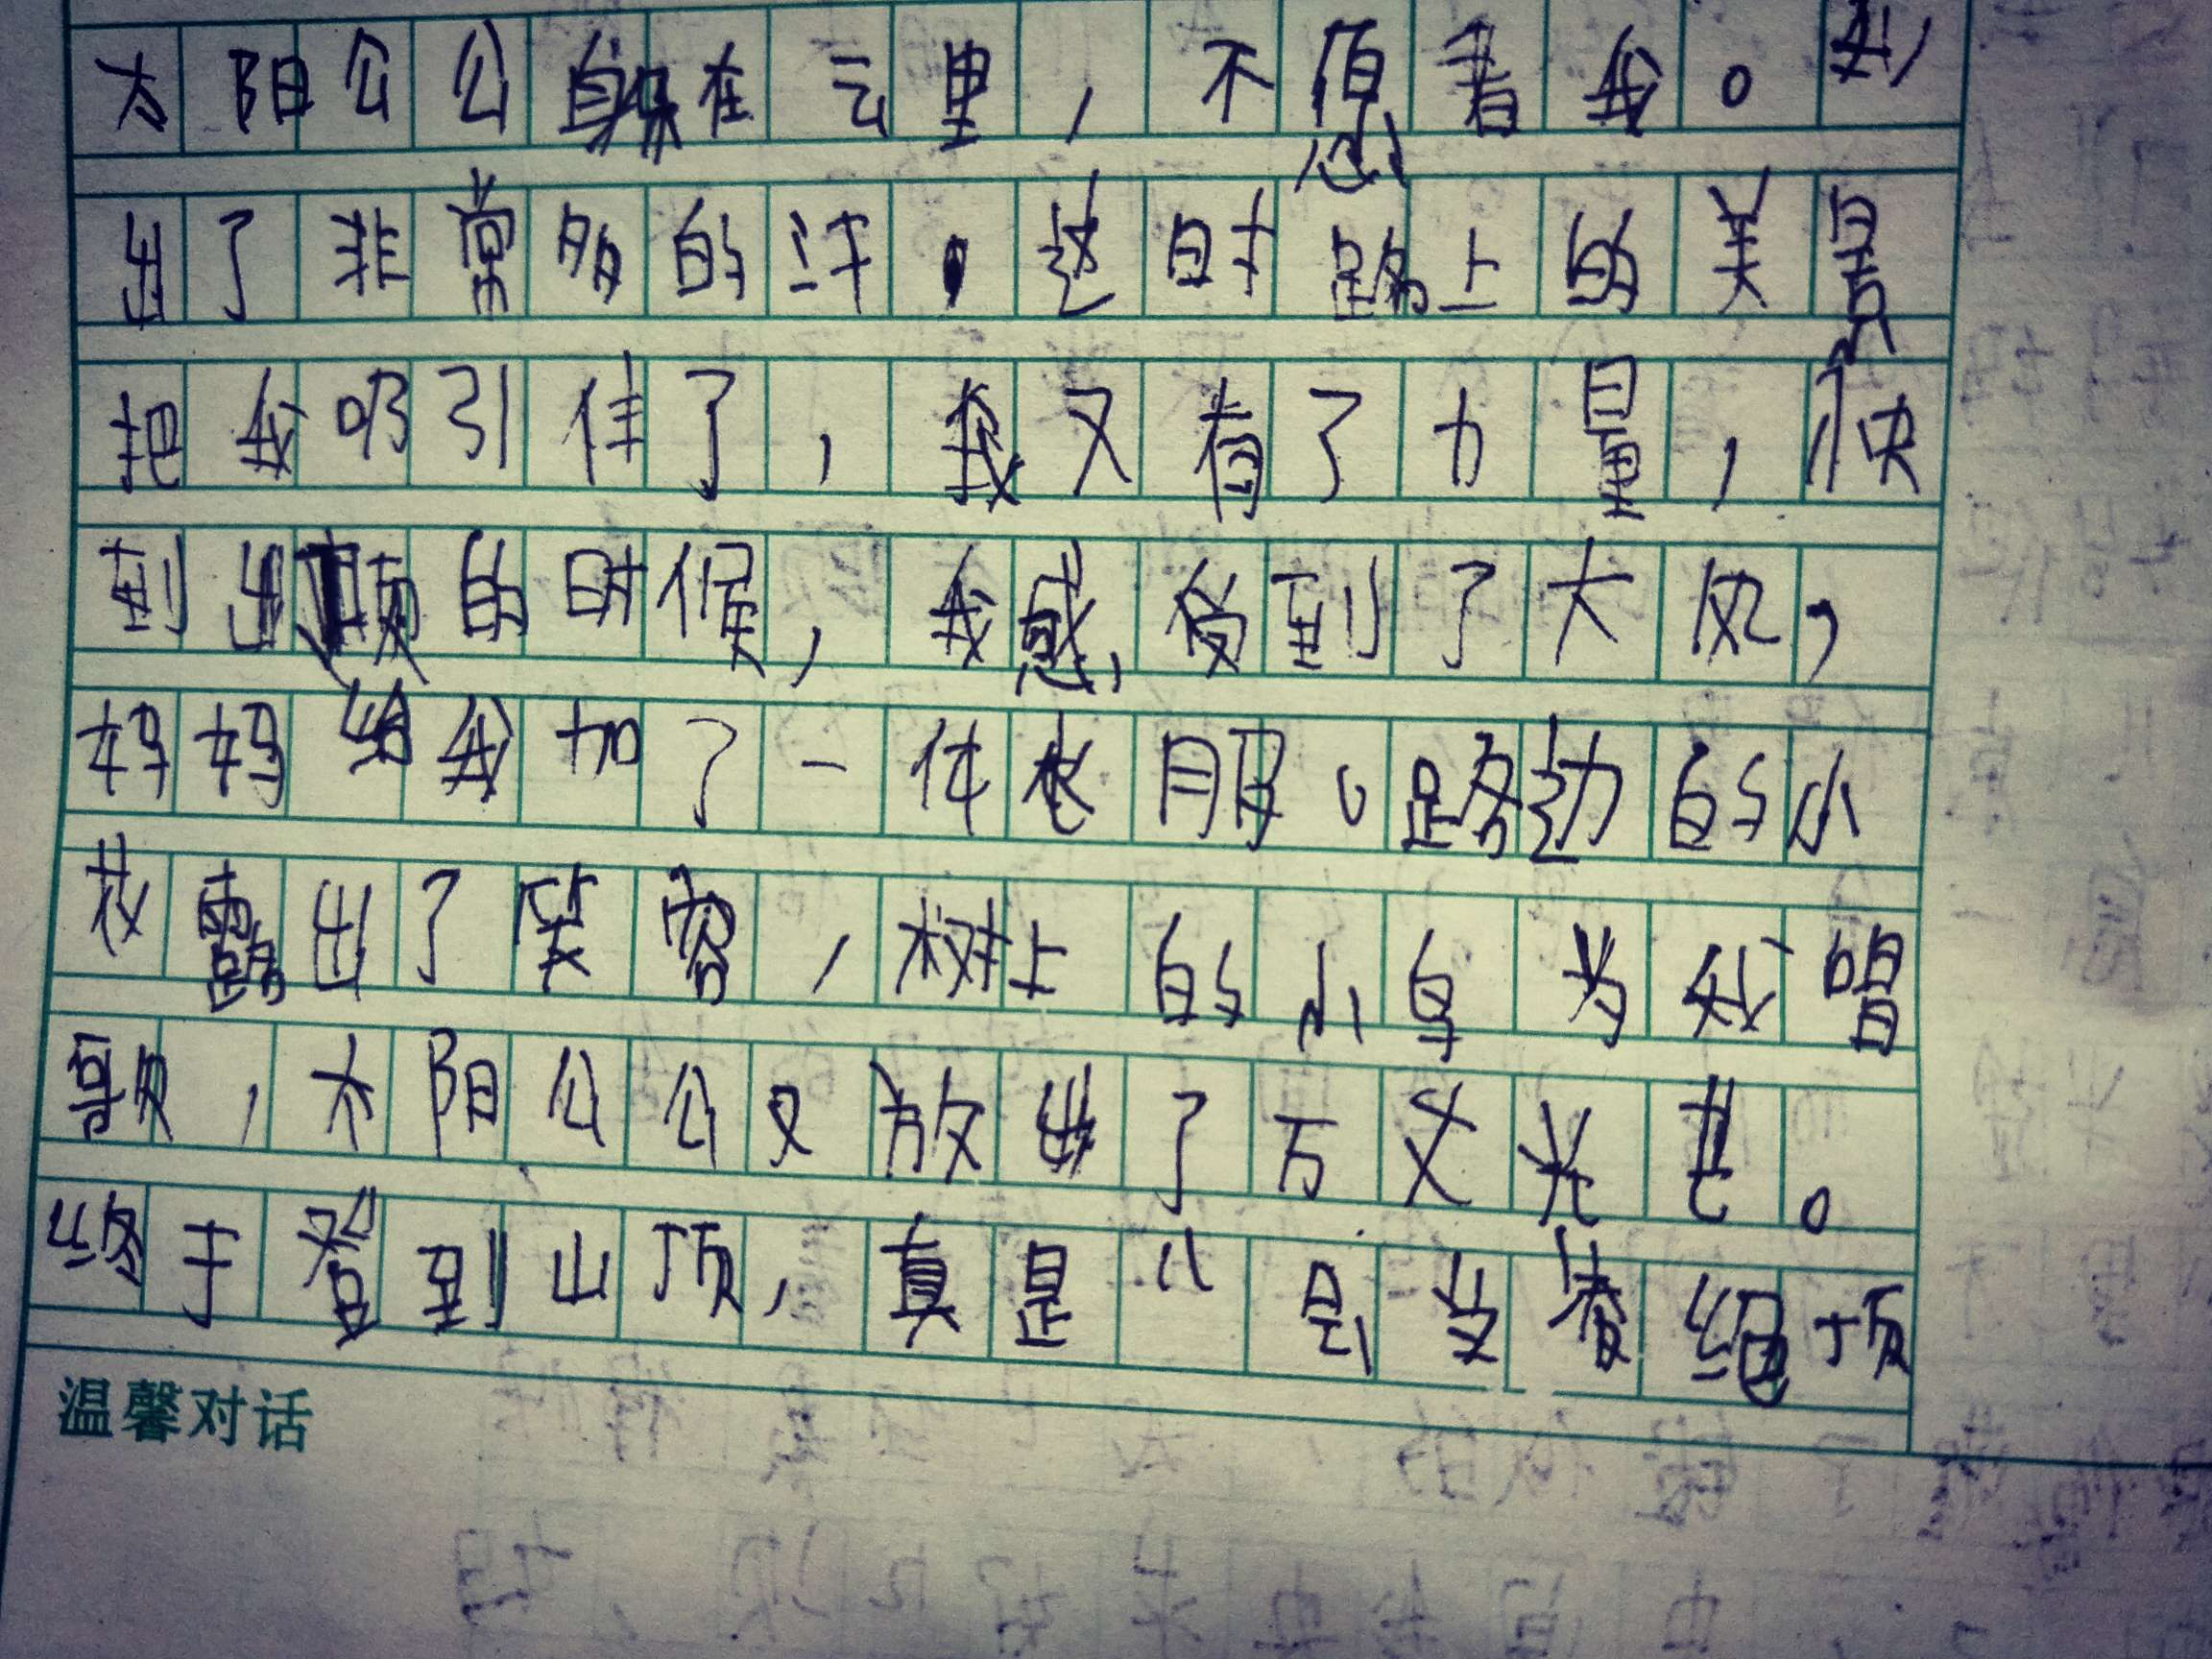 太阳公公躲在云里，不愿看我。我
出了非常多的汗。这时路上的美景
把我吸引住了，我又有了力量，快
到山顶的时候，我感受到了大风，
妈妈给我加了一件衣服。路边的小
花露出了笑容，树上的小鸟为我唱
歌，太阳公公又放出了万丈光芒。
终于登到山顶，真是“会当凌绝顶
温馨对话